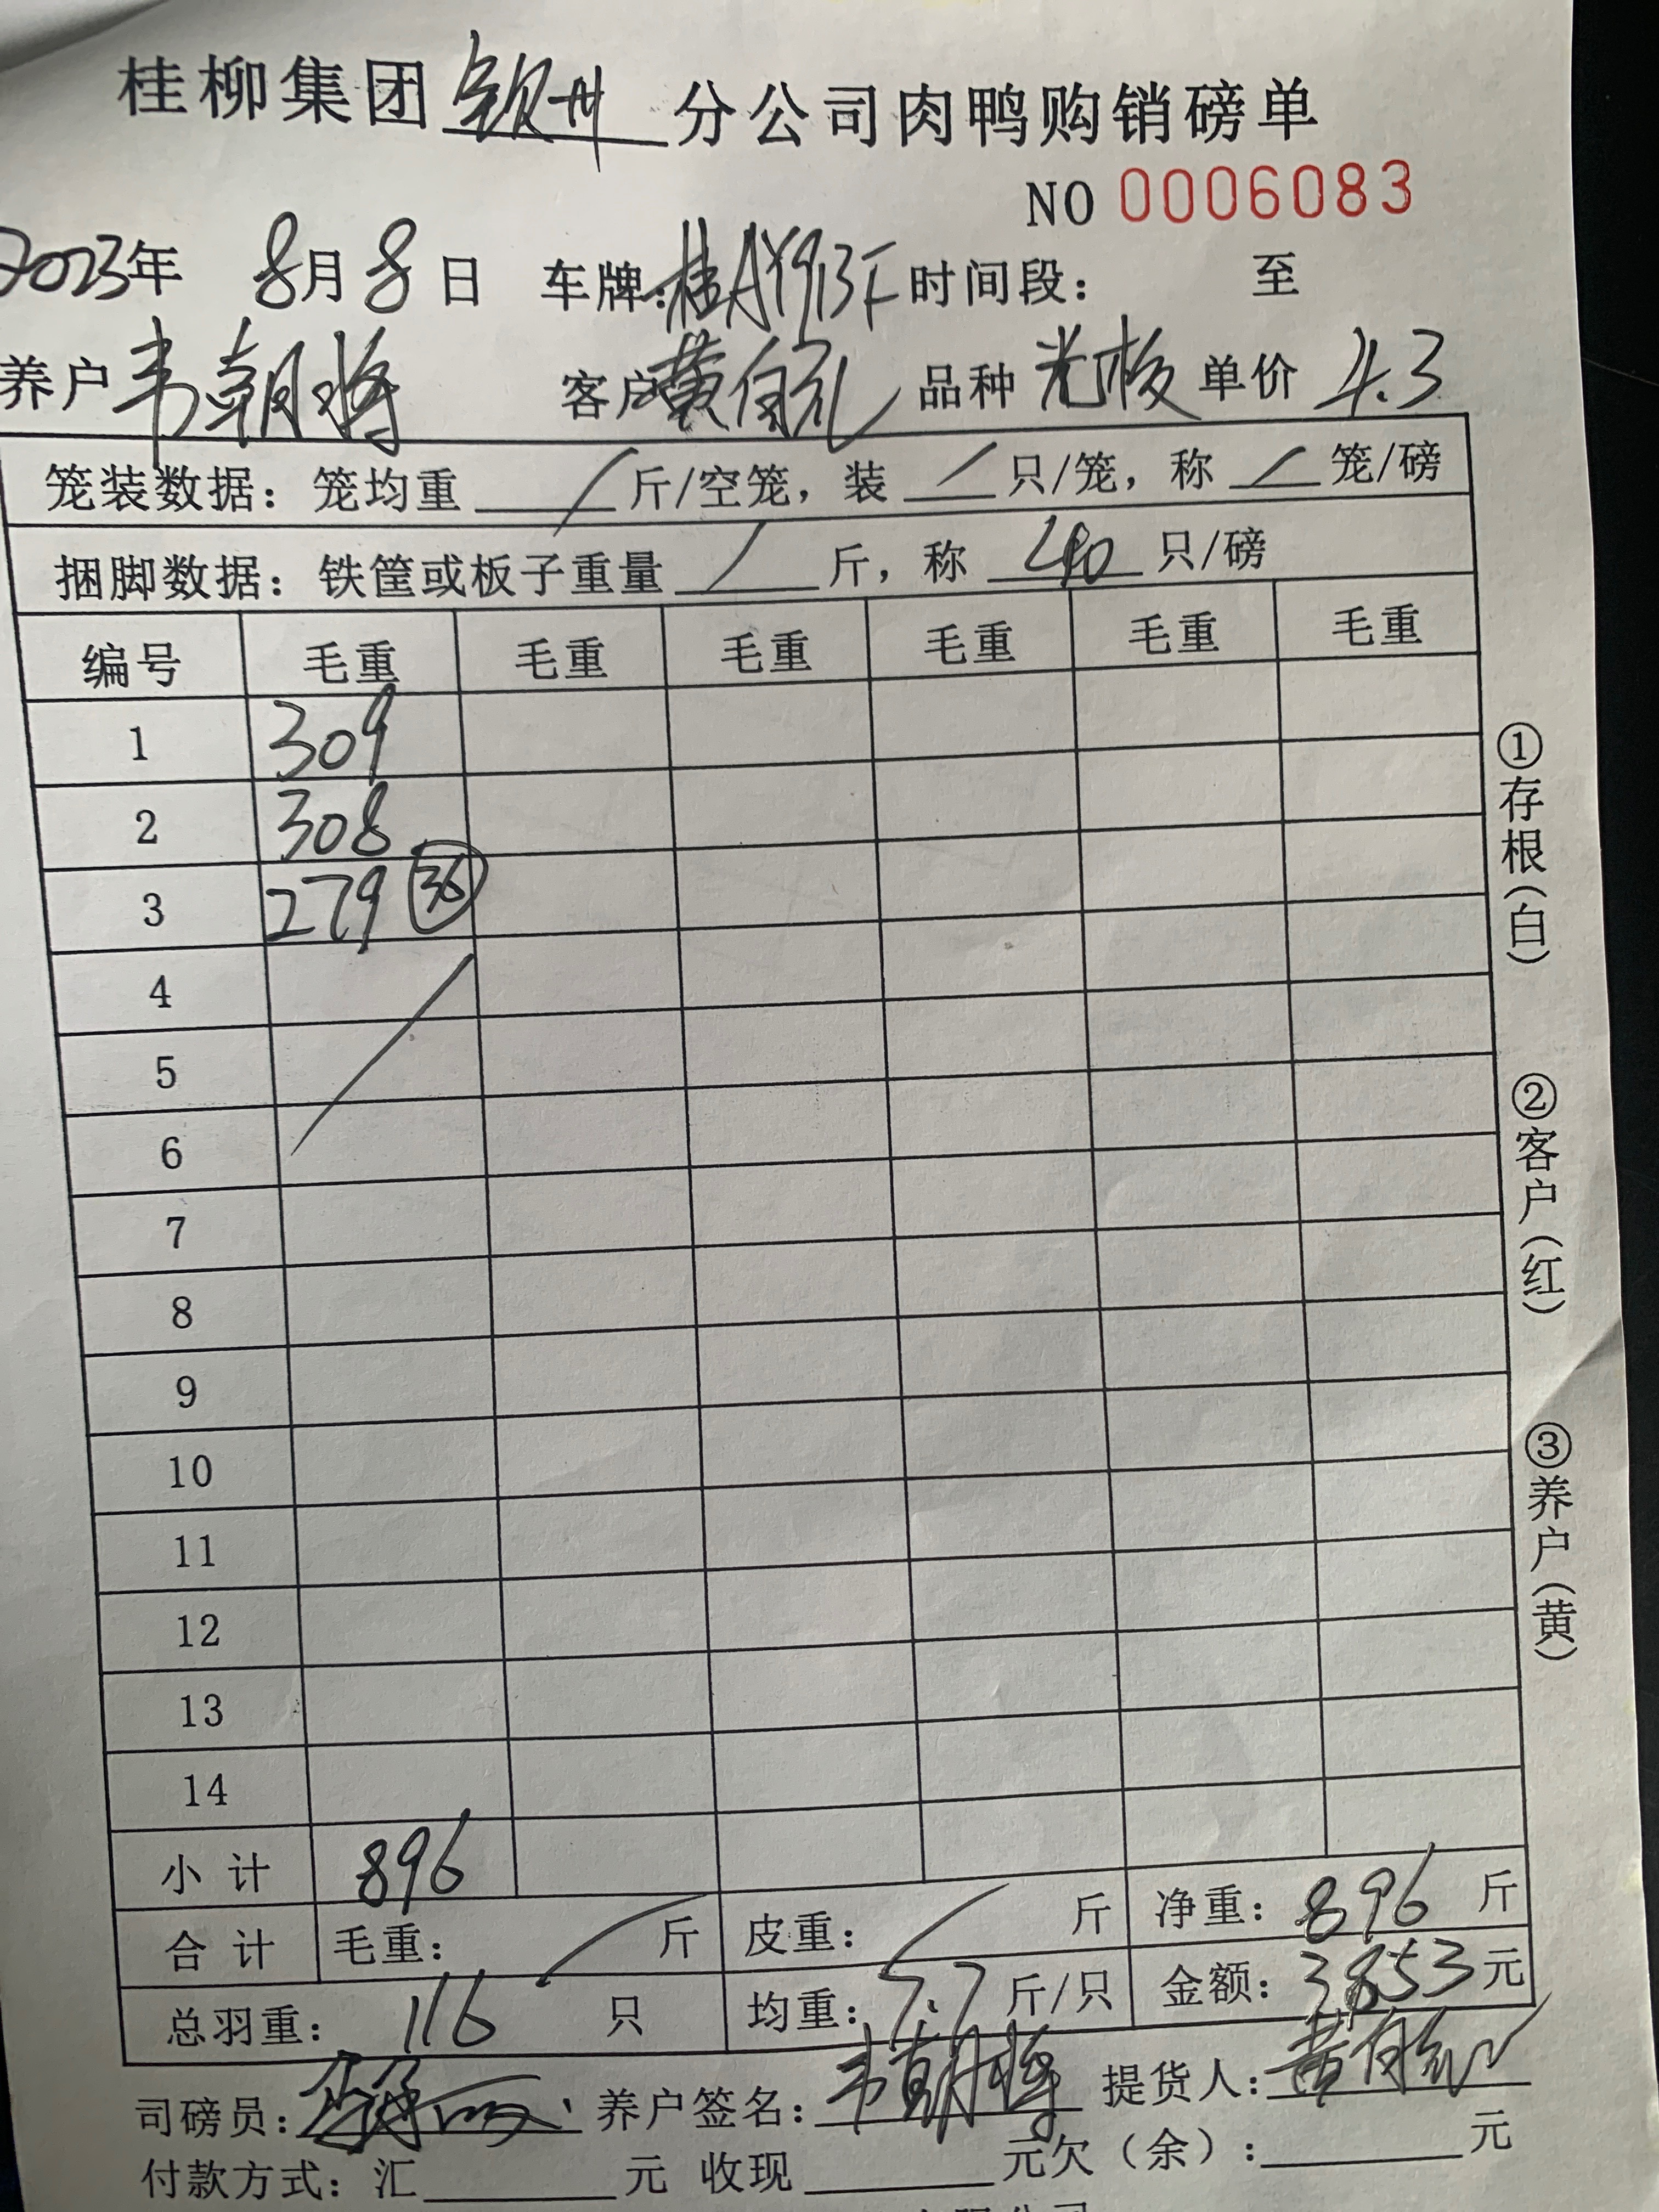 桂柳集团钦州分公司肉鸭购销磅单
NO 0006083
2023年 8月8日 车牌:桂AY913F 时间段: 至
养户韦朝将 客户黄自礼 品种光板 单价 4.3
笼装数据: 笼均重 / 斤/空笼, 装 / 只/笼, 称 / 笼/磅
捆脚数据: 铁筐或板子重量 / 斤, 称 40 只/磅
编号 毛重 毛重 毛重 毛重 毛重 毛重
1 309
2 308
3 279 36
4
5
6
7
8
9
10
11
12
13
14
小计 896
合计 毛重: / 斤 皮重: / 斤 净重: 896 斤
总羽重: 116 只 均重: 7.7 斤/只 金额: 3853元
司磅员: 养户签名: 韦朝将 提货人: 黄自礼
付款方式: 汇 元 收现 元欠(余): 元
①存根(白)
②客户(红)
③养户(黄)